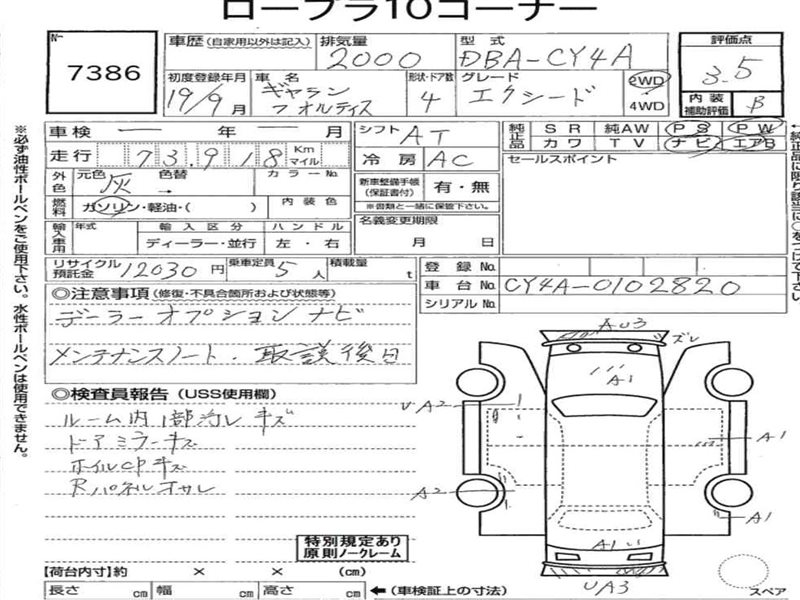 ロープラ10コーナー
No 7386
車歴 (自家用以外は記入) 排気量 2000 型式 DBA-CY4A 評価点 3.5
初度登録年月 19/9月 車名 ギャラン フォルティス 形状・ドア数 4 グレード エクシード 2WD 4WD
内装補助評価 B
車検 ー 年 ー 月 シフト AT
純正品 SR 純AW PS PW
カワ TV ナビ エアB
走行 73,918 Km マイル 冷房 AC
セールスポイント
外色 元色 灰 色替 → カラーNo.
新車整備手帳(保証書付) 有・無
※書類と一緒に保管下さい。
燃料 ガソリン・軽油・( ) 内装色
名義変更期限 月 日
輸入車用 年式 輸入区分 ディーラー・並行 ハンドル 左・右
リサイクル預託金 12030円 乗車定員 5人 積載量 t
登録No.
車台No. CY4A-0102820
シリアルNo.
◎注意事項(修復・不具合箇所および状態等)
デーラーオプションナビ
メンテナンスノート・取説後日
◎検査員報告(USS使用欄)
ルーム内1部汚レ キズ
ドアミラーキズ
ホイルCPキズ
Rパネルオサレ
特別規定あり
原則ノークレーム
【荷台内寸】約 × × (cm)
長さ cm 幅 cm 高さ cm ←(車検証上の寸法)
AU3
ズレ
A1
UA2
A1
A2
A1
A1
UA3
スペア
※必ず油性ボールペンをご使用下さい。水性ボールペンは使用できません。